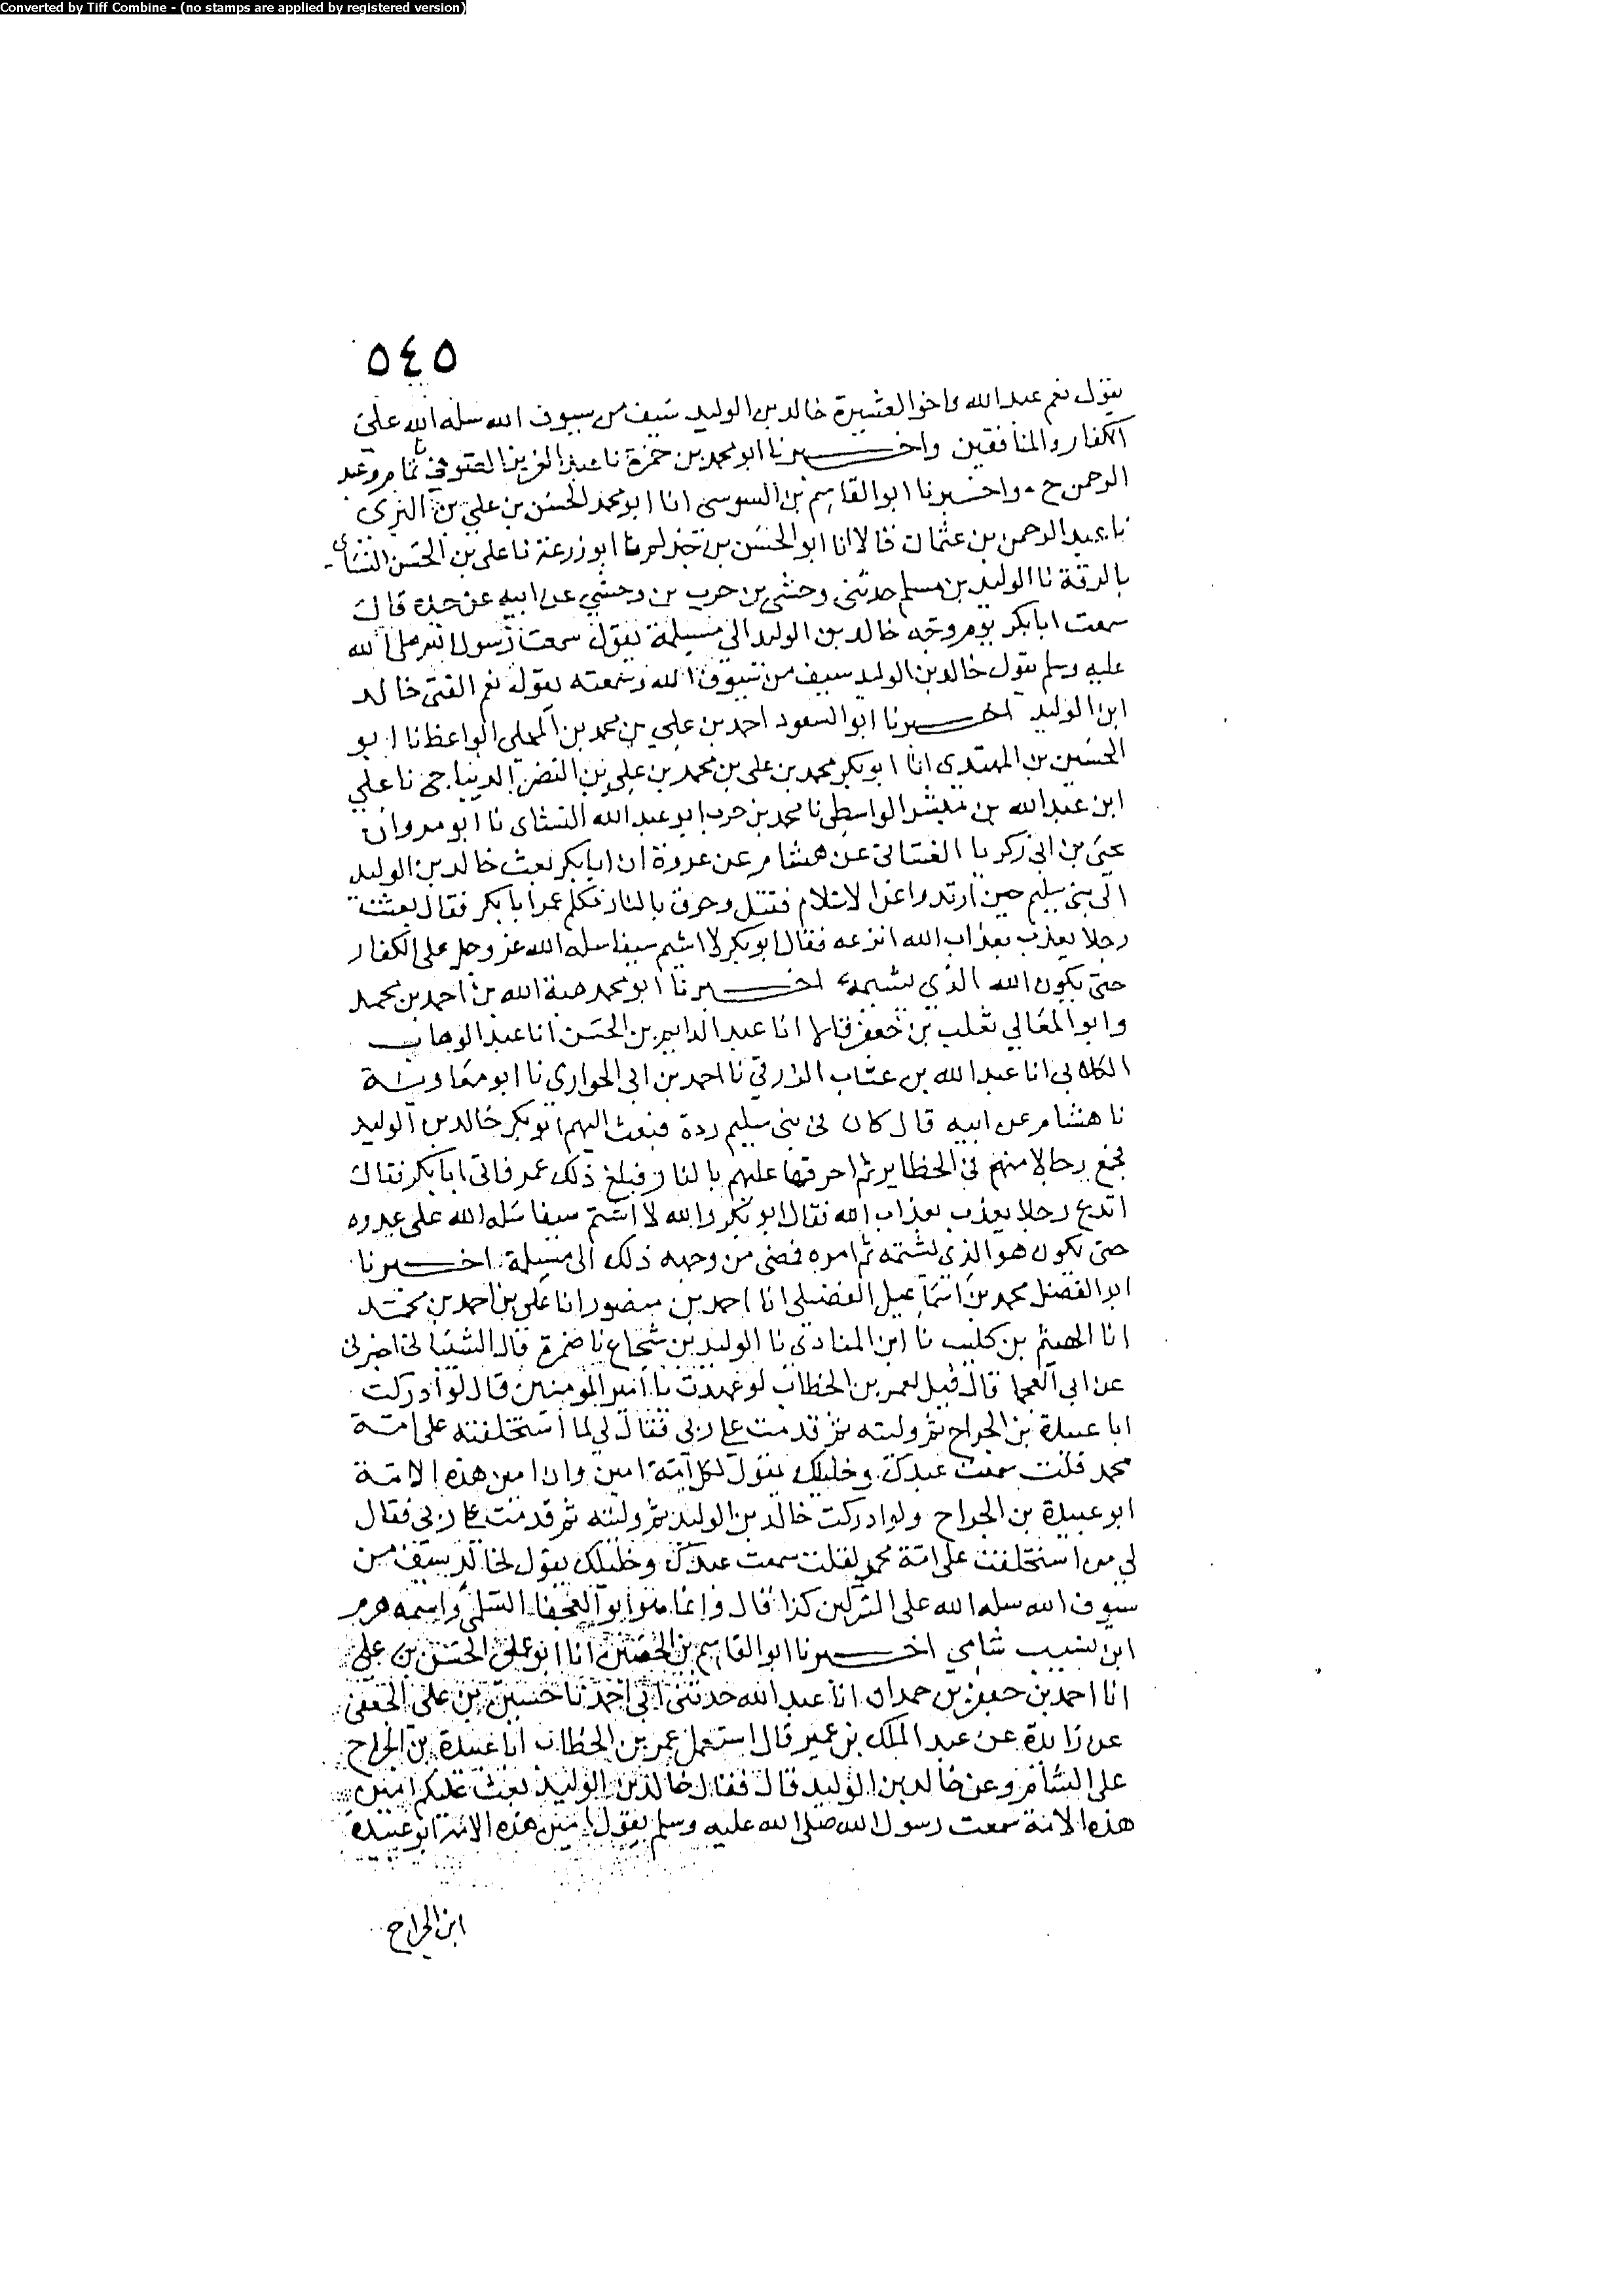 Converted by Tiff Combine - (no stamps are applied by registered version)
٥٤٥
يقول نعم عبد الله واخو العشيرة خالد بن الوليد سيف من سيوف الله سله الله على
الكفار والمنافقين واخبرنا ابو محمد بن حمزة نا عبد العزيز الصوفي نا تمام وعبد
الرحمن ح - واخبرنا ابو القاسم بن السوسي انا ابو محمد الحسن بن علي بن البري
نا عبد الرحمن بن عثمان قالا انا ابو الحسن بن حذلم نا ابو زرعة نا علي بن الحسن النسأي
بالرقة نا الوليد بن مسلم حدثني وحشي بن حرب بن وحشي عن ابيه عن جده قال
سمعت ابا بكر يوم وجه خالد بن الوليد الى مسيلمة يقول سمعت رسول الله صلى الله
عليه وسلم يقول خالد بن الوليد سيف من سيوف الله وسمعته يقول نعم الفتى خالد
ابن الوليد اخبرنا ابو السعود احمد بن علي بن محمد بن المجلي الواعظ نا ابو
الحسين بن المهتدي انا ابو بكر محمد بن علي بن محمد بن علي بن النضر الديباجي نا علي
ابن عبد الله بن مبشر الواسطي نا محمد بن حرب ابو عبد الله النشاي نا ابو مروان
يحيى بن ابي زكريا الغساني عن هشام عن عروة ان ابا بكر بعث خالد بن الوليد
الى بني سليم حين ارتدوا عن الاسلام فقتل وحرق بالنار فكلم عمر ابا بكر فقال بعثت
رجلا يعذب بعذاب الله انزعه فقال ابو بكر لا اشيم سيفا سله الله عز وجل على الكفار
حتى يكون الله الذي يشيمه اخبرنا ابو محمد هبة الله بن احمد بن محمد
وابو المعالي ثعلب بن جعفر قالا انا عبد الدايم بن الحسن انا عبد الوهاب
الكلابي انا عبد الله بن عتاب الزرقي نا احمد بن ابي الحواري نا ابو معاوية
نا هشام عن ابيه قال كان في بني سليم ردة فبعث اليهم ابو بكر خالد بن الوليد
فجمع رجالا منهم في الحظاير ثم احرقها عليهم بالنار فبلغ ذلك عمر فاتى ابا بكر فقال
اتدع رجلا يعذب بعذاب الله فقال ابو بكر والله لا اشيم سيفا سله الله على عدوه
حتى يكون هو الذي يشيمه ثم امره فمضى من وجهه ذلك الى مسيلمة اخبرنا
ابو الفضل محمد بن اسماعيل الفضيلي انا احمد بن منصور انا علي بن احمد بن محمد
انا الهيثم بن كليب نا ابن المنادي نا الوليد بن شجاع نا ضمرة قال الشيباني اخبرني
عن ابي العجما قال قيل لعمر بن الخطاب لو عهدت يا امير المومنين قال لو ادركت
ابا عبيدة بن الجراح ثم وليته ثم قدمت على ربي فقال لي لما استخلفته على امة
محمد قلت سمعت عبدك وخليلك يقول لكل امة امين وان امين هذه الامة
ابو عبيدة بن الجراح ولو ادركت خالد بن الوليد ثم وليته ثم قدمت على ربي فقال
لي من استخلفت على امة محمد لقلت سمعت عبدك وخليلك يقول لخالد سيف من
سيوف الله سله الله على المشركين كذا قال وانما هو ابو العجفا السلمي واسمه هرم
ابن نسيب شامي اخبرنا ابو القاسم بن الحصين انا ابو علي الحسن بن علي
انا احمد بن جعفر بن حمدان انا عبد الله حدثني ابي احمد نا حسين بن علي الجعفي
عن زايدة عن عبد الملك بن عمير قال استعمل عمر بن الخطاب ابا عبيدة بن الجراح
على الشام وعن خالد بن الوليد قال فقال خالد بن الوليد بعث عليكم امين
هذه الامة سمعت رسول الله صلى الله عليه وسلم يقول امين هذه الامة ابو عبيدة
ابن الجراح